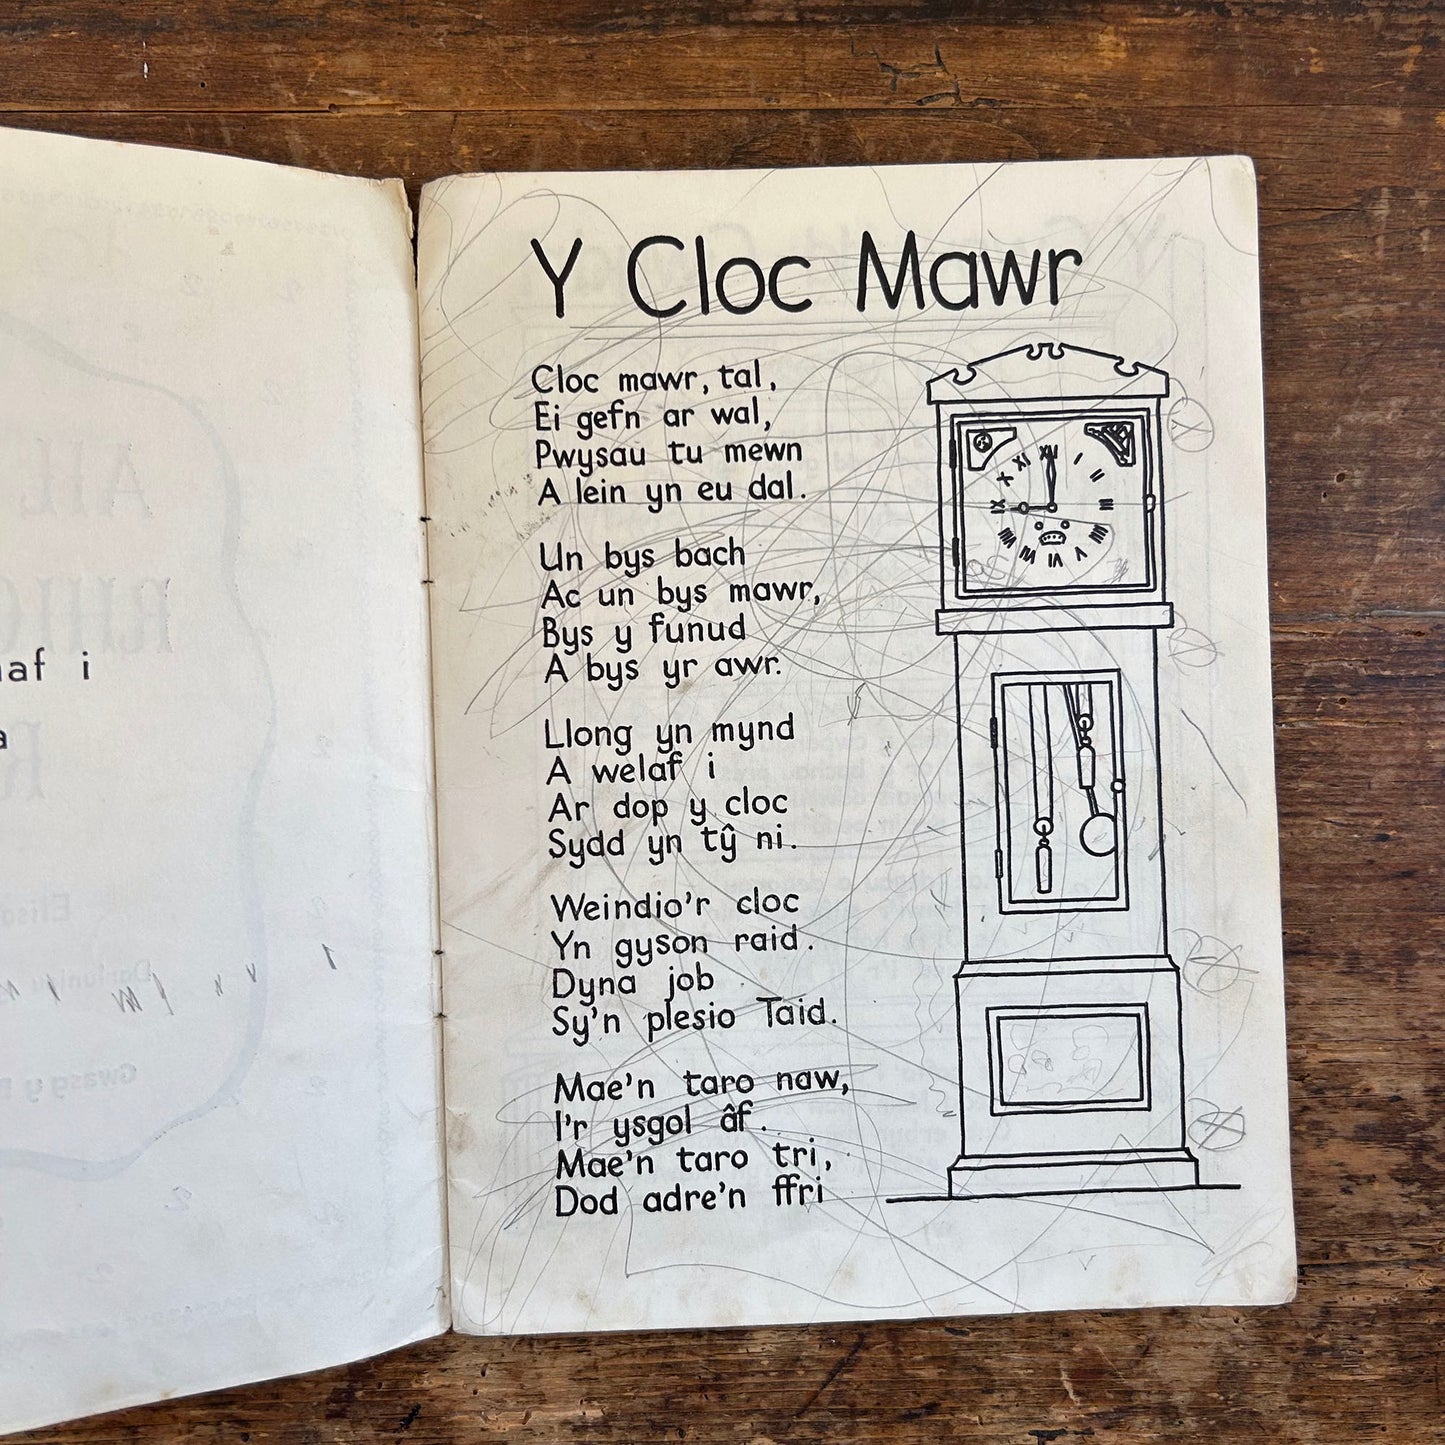 af i
a
Y Cloc Mawr
Cloc mawr, tal,
Ei gefn ar wal,
Pwysau tu mewn
A lein yn eu dal.
Un bys bach
Ac un bys mawr,
Bys y funud
A bys yr awr.
Llong yn mynd
A welaf i
Ar dop y cloc
Sydd yn tŷ ni.
Weindio'r cloc
Yn gyson raid.
Dyna job
Sy'n plesio Taid.
Mae'n taro naw,
I'r ysgol âf.
Mae'n taro tri,
Dod adre'n ffri
XII I II III IIII V VI VII VIII IX X XI